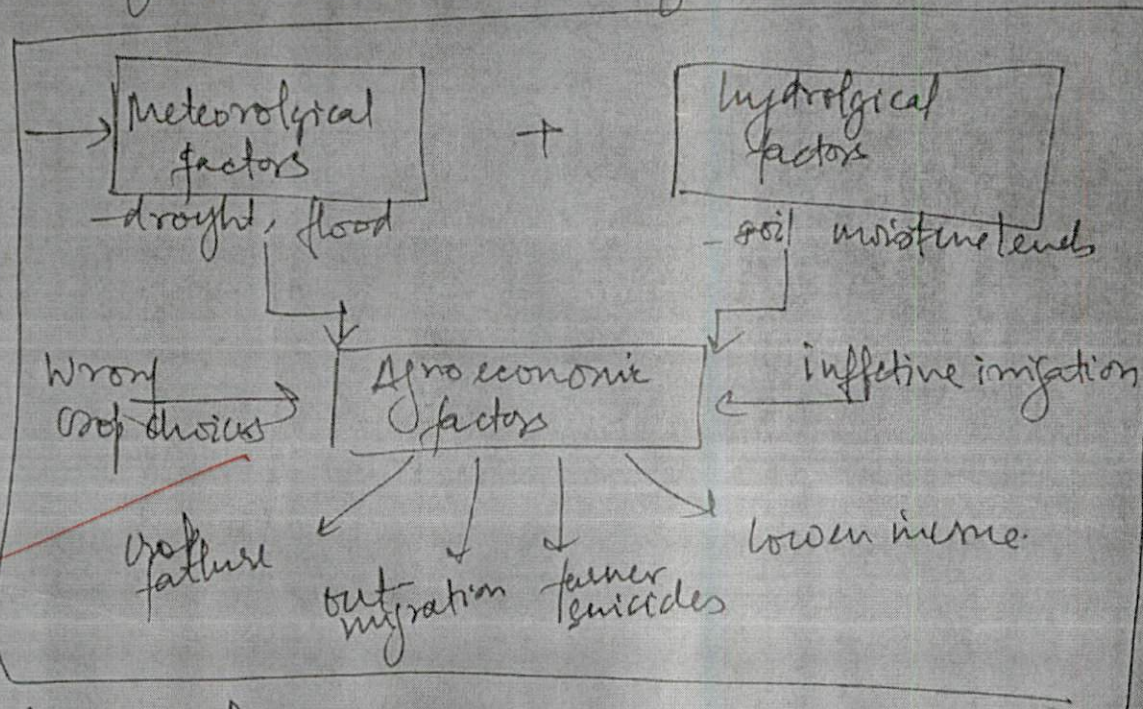 Meteorolgical
factors
+
hydrolgical
factors
- droyht, flood
- soil moisture levels
Wrong
crop choices
Agroeconomic
factors
inffctive irrigation
crop
failure
out-
migration
farmer
suicides
lower income.